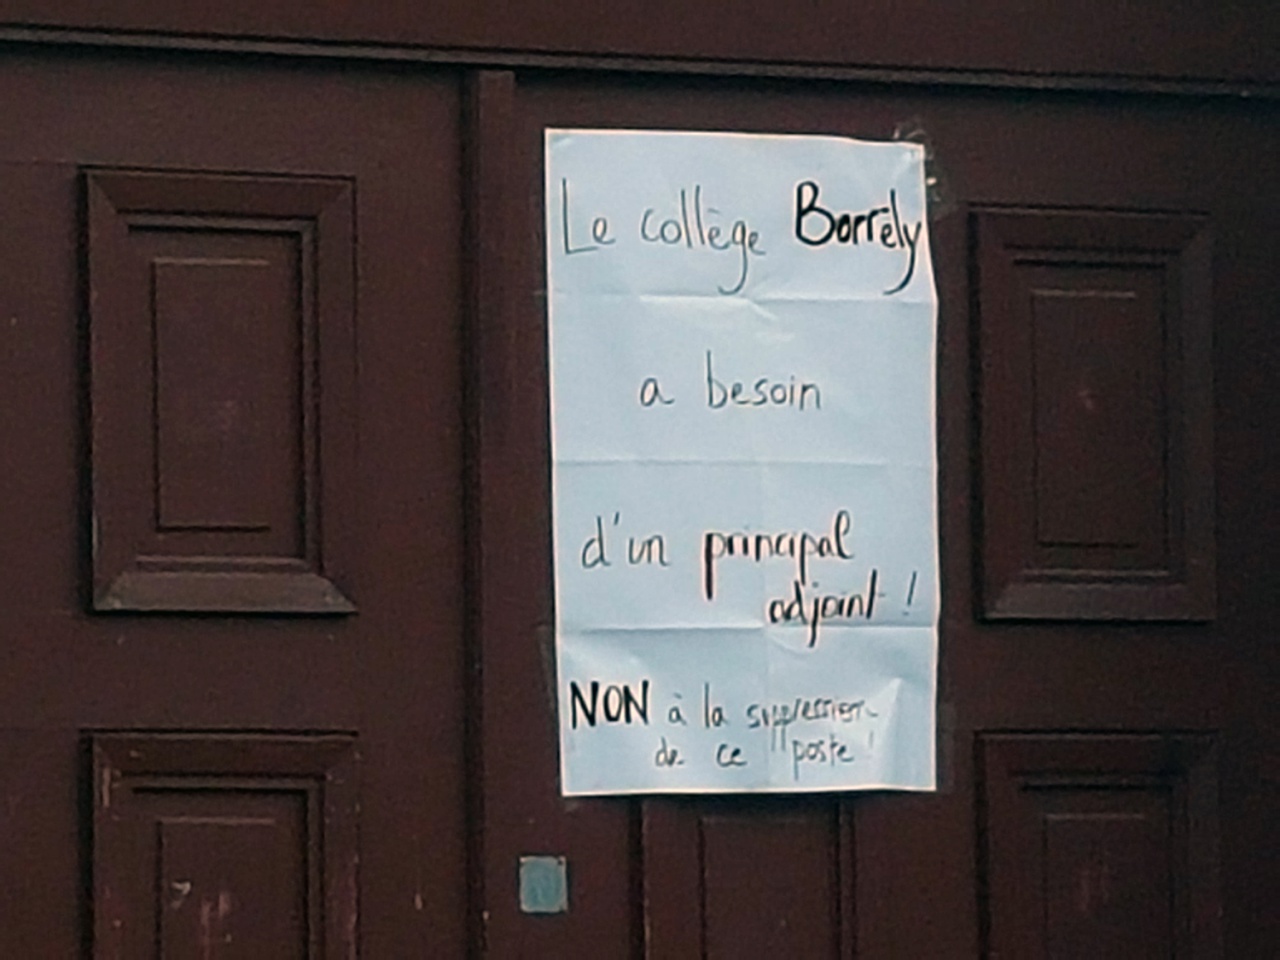 Le collège Borrély
a besoin
d'un principal
adjoint !
NON à la suppression
de ce poste !